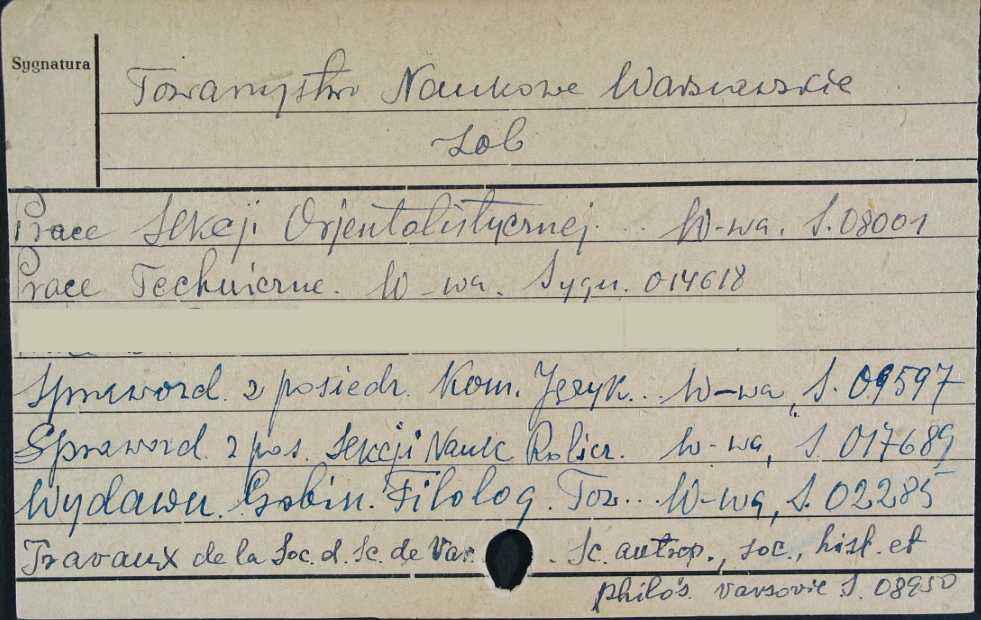 Sygnatura
Towarzystwo Naukowe Warszawskie
Zob
Prace Sekcji Orjentalistycznej. W-wa. S. 08001
Prace Techniczne. W-wa. Sygn. 014618
Sprawozd. z posiedz. Kom. Język.. W-wa, S. 09597
Sprawozd. z pos. Sekcji Nauk Rolicz. W-wa, S. 017689
Wydawn. Gabin. Filolog. Tow.. W-wa, S. 02285
Travaux de la Soc. d. Sc. de Var. . Sc. antrop., soc., hist. et
philos. Varsovie S. 08950